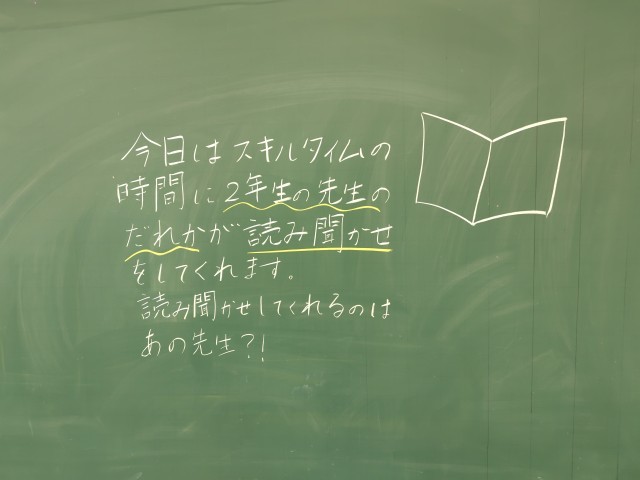 今日はスキルタイムの
時間に2年生の先生の
だれかが読み聞かせ
をしてくれます。
読み聞かせしてくれるのは
あの先生?!